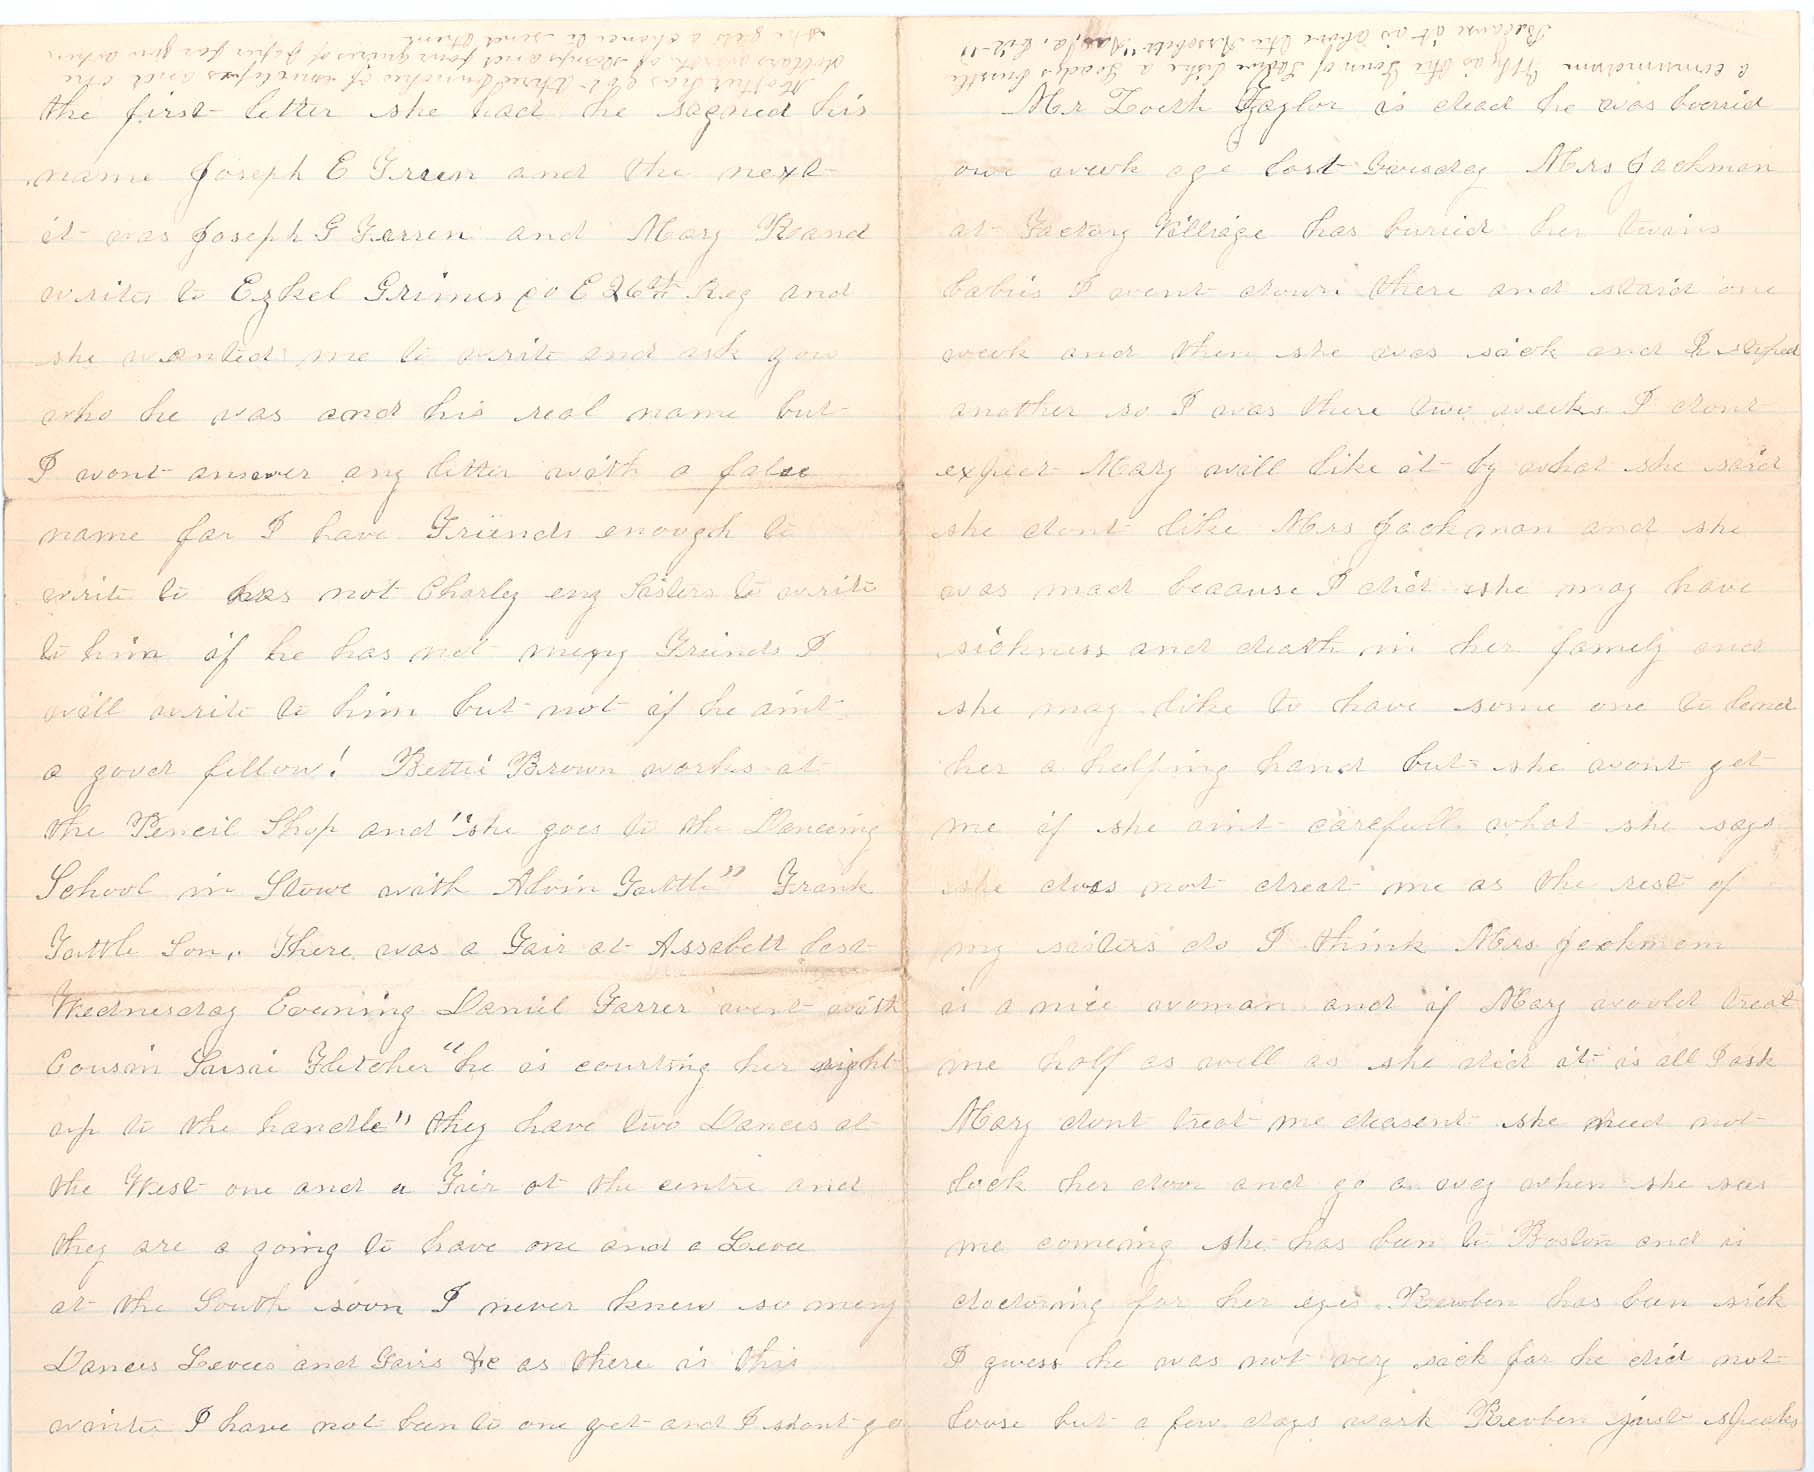 Mother has got three bunches of envelopes and one
dollars worth of stamps and four quires of paper for you when
she gets a chance to send them
the first letter she had he sagned his
name Joseph E Green and the next
it was Joseph G Farren and Mary Rand
writes to Ezkel Grimes co E 26th Reg and
she wanted me to write and ask you
who he was and his real name but
I wont answer any letter with a false
name for I have Friends enough to
write to has not Charley eny Sisters to write
to him if he has not meny Friends I
will write to him but not if he aint
a good fellow! Bettie Brown works at
the Pencil Shop and "she goes to the Danceing
School in Stowe with Alvin Tuttle" Frank
Tuttle Son. There was a Fair at Assabett last
Wednesday Evening Daniel Farrer went with
Cousin Susai Fletcher "he is courting her right
up to the handle" they have two Dances at
the West one and a Fair at the centre and
they are a going to have one and a Levee
at the South soon I never knew so meny
Dances Levees and Fairs &c as there is this
winter I have not been to one yet and I shant go
a conundrum Why is the Town of like a Ladys bustle
Because it is above the Assabett
Mr Taylor is dead he was burrid
one week ago last Tuesday Mrs Jackman
at Factory Villiage has burried her twins
babies I went down there and staid one
week and then she was sick and I stiped
another so I was there two weeks I dont
expect Mary will like it by what she said
she dont like Mrs Jackman and she
was mad because I did she may have
sickness and death in her family and
she may like to have some one to lend
her a helping hand but she wont get
me if she aint carefull what she says
she does not treat me as the rest of
my sisters do I think Mrs Jackmam
is a nice woman and if Mary would treat
me half as well as she did it is all I ask
Mary dont treat me deasent she need not
lock her door and go a way when she sees
me comeing she has been to Boston and is
doctoring for her eyes Reuben has been sick
I guess he was not very sick for he did not
loose but a few days work Reuben just speaks